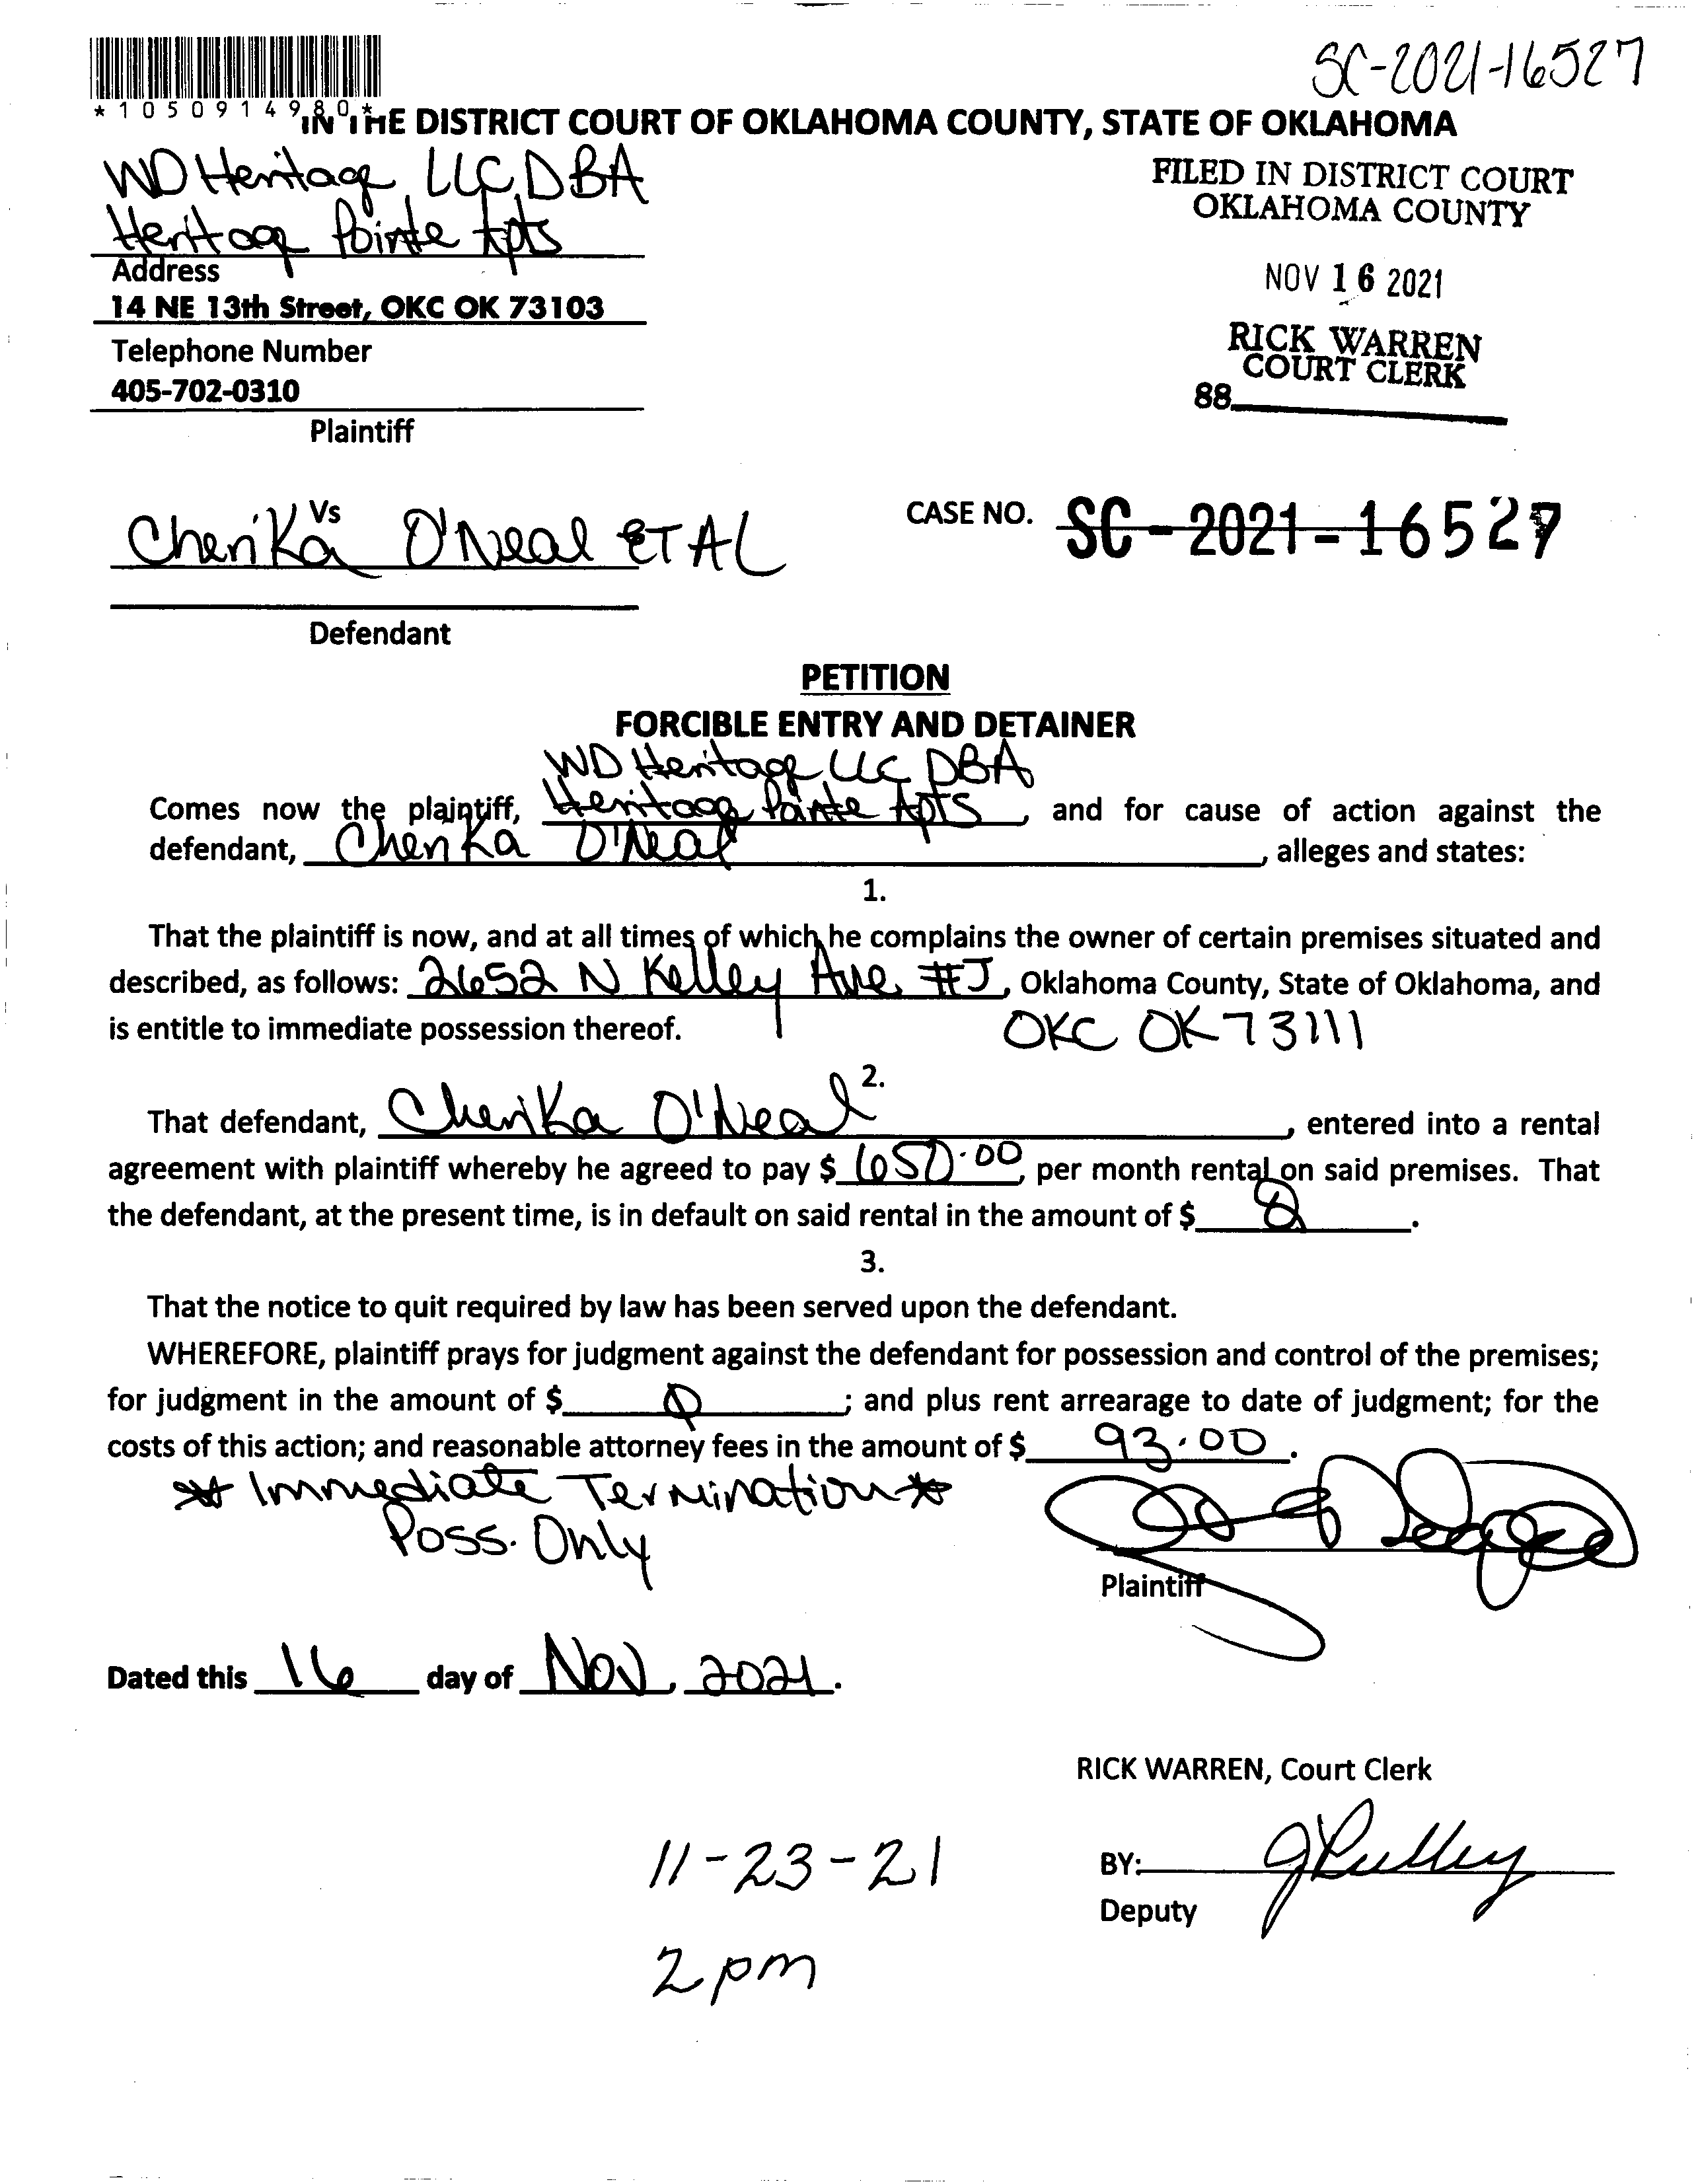 SC-2021-16527
*1050914980*
IN THE DISTRICT COURT OF OKLAHOMA COUNTY, STATE OF OKLAHOMA
WD Heritage, LLC, DBA
Heritage Pointe Apts
Address
14 NE 13th Street, OKC OK 73103
Telephone Number
405-702-0310
Plaintiff
FILED IN DISTRICT COURT
OKLAHOMA COUNTY
NOV 16 2021
RICK WARREN
COURT CLERK
88
Vs
Cherika O'Neal ET AL
Defendant
CASE NO. SC-2021-16527
PETITION
FORCIBLE ENTRY AND DETAINER
WD Heritage LLC DBA
Comes now the plaintiff, Heritage Pointe Apts, and for cause of action against the
defendant, Cherika O'Neal, alleges and states:
1.
That the plaintiff is now, and at all times of which he complains the owner of certain premises situated and
described, as follows: 2652 N Kelley Ave #J, Oklahoma County, State of Oklahoma, and
is entitle to immediate possession thereof. OKC OK 73111
2.
That defendant, Cherika O'Neal, entered into a rental
agreement with plaintiff whereby he agreed to pay $ 650.00, per month rental on said premises. That
the defendant, at the present time, is in default on said rental in the amount of $ Ø.
3.
That the notice to quit required by law has been served upon the defendant.
WHEREFORE, plaintiff prays for judgment against the defendant for possession and control of the premises;
for judgment in the amount of $ Ø; and plus rent arrearage to date of judgment; for the
costs of this action; and reasonable attorney fees in the amount of $ 93.00.
** Immediate Termination *
Poss. Only
Plaintiff
Dated this 16 day of Nov, 2021.
RICK WARREN, Court Clerk
BY:
Deputy
11-23-21
2 pm